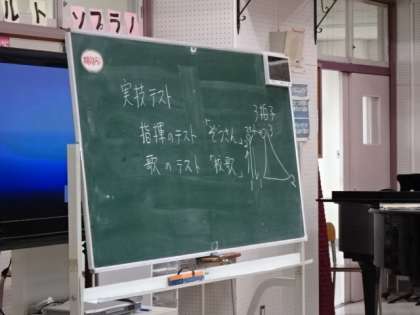 ルト ソプラノ
実技テスト
3拍子
指揮のテスト「ぞうさん」
歌のテスト「校歌」